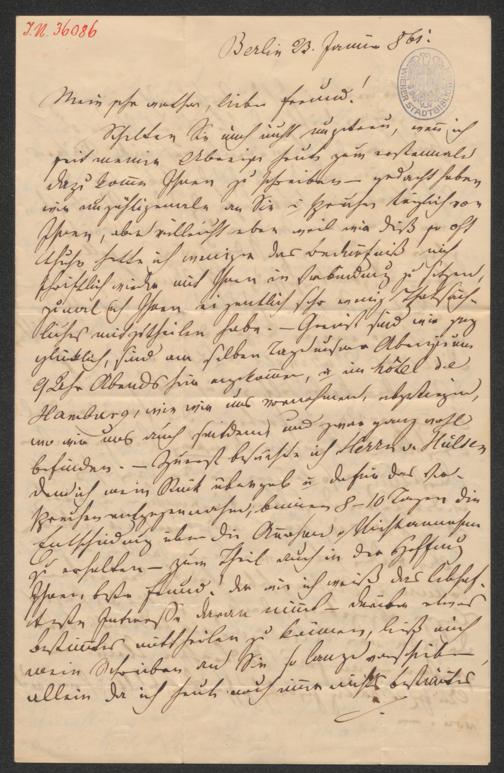 I.N. 36086
Berlin 23. Januar 861.
WIENER STADTBIBLIOTHEK
Mein sehr werther, lieber Freund!
Schelten Sie mich nicht ungetreu, wenn ich
seit meiner Abreise heute zum erstenmale
dazu komme Ihnen zu schreiben – gedacht haben
wir unzähligemale an Sie u sprechen täglich von
Ihnen, aber vielleicht eben weil wir dieß so oft
thun hatte ich weniger das Bedürfniß mich
schriftlich wieder mit Ihnen in Verbindung zu setzen,
zumal ich Ihnen eigentlich sehr wenig Thatsäch-
liches mitzutheilen habe. – Gereist sind wir ganz
glücklich, sind am selben Tag unserer Abreise um
9 Uhr Abends hier angekommen, u im Hôtel de
Hamburg, wie wir uns vornahmen, abgestiegen,
wo wir uns auch seitdem und zwar ganz wohl
befinden. – Zuerst besuchte ich Herrn v Hülsen
dem ich mein Stück übergab u dafür das Ver-
sprechen entgegennahm, binnen 8–10 Tagen die
Entscheidung über die Annahme o Nichtannahme
zu erhalten – zum Theil auch in der Hoffnung
Ihnen, bester Freund! der wie ich weiß das lebhaf-
teste Interesse daran nimmt – darüber etwas
bestimtes mittheilen zu können, ließ mich
mein Schreiben an Sie so lange verschieben –
allein da ich heute noch immer nichts bestimtes